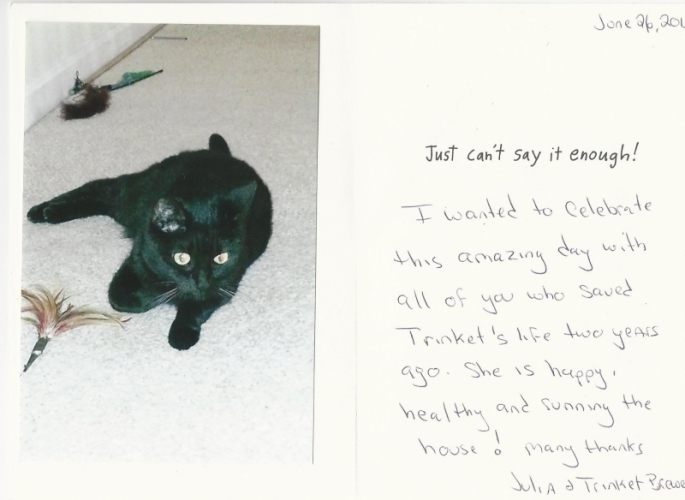 June 26, 201
Just can't say it enough!
I wanted to celebrate
this amazing day with
all of you who saved
Trinket's life two years
ago. She is happy,
healthy and running the
house! Many thanks
Julia & Trinket